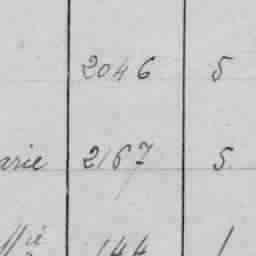 2046 5
arie 2167 5
144 1